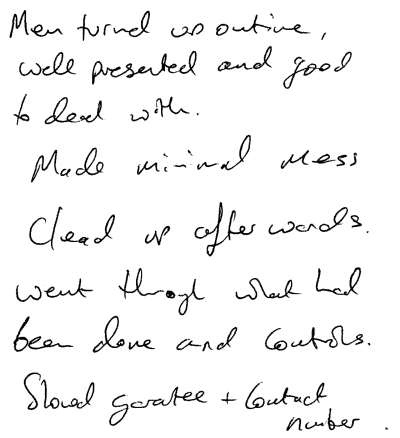 Men turned up on time,
well presented and good
to deal with.
Made minimal mess
Clead up afterwards.
went through what had
been done and controls.
Showed garatee + Contact
number.